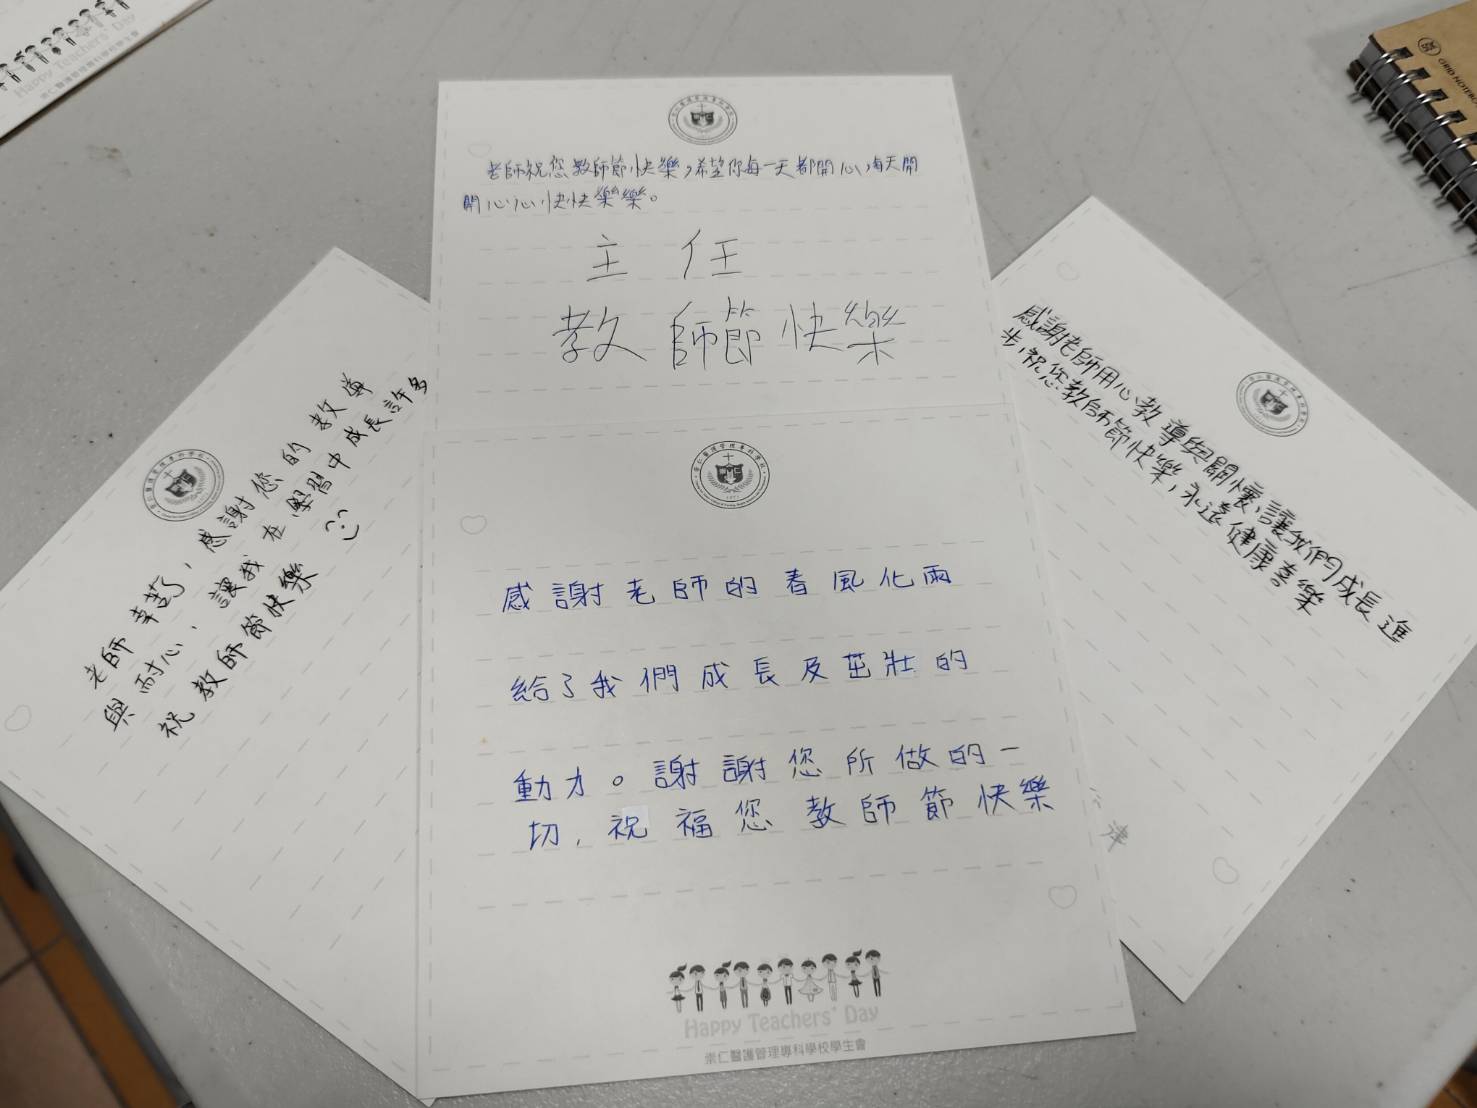 Happy Teachers' Day
崇仁醫護管理專科學校學生會
GRID NOTEBOOK
老師祝您教師節快樂,希望你每一天都開心,每天開
開心心快快樂樂。
主任
教師節快樂
老師辛苦了,感謝您的教導
與耐心,讓我在學習中成長許多
祝教師節快樂
感謝老師用心教導與關懷,讓我們成長進
步,祝您教師節快樂,永遠健康喜樂
崇仁醫護管理專科學校
感謝老師的春風化雨
給了我們成長及茁壯的
動力。謝謝您所做的一
切,祝福您教師節快樂
Happy Teachers' Day
崇仁醫護管理專科學校學生會